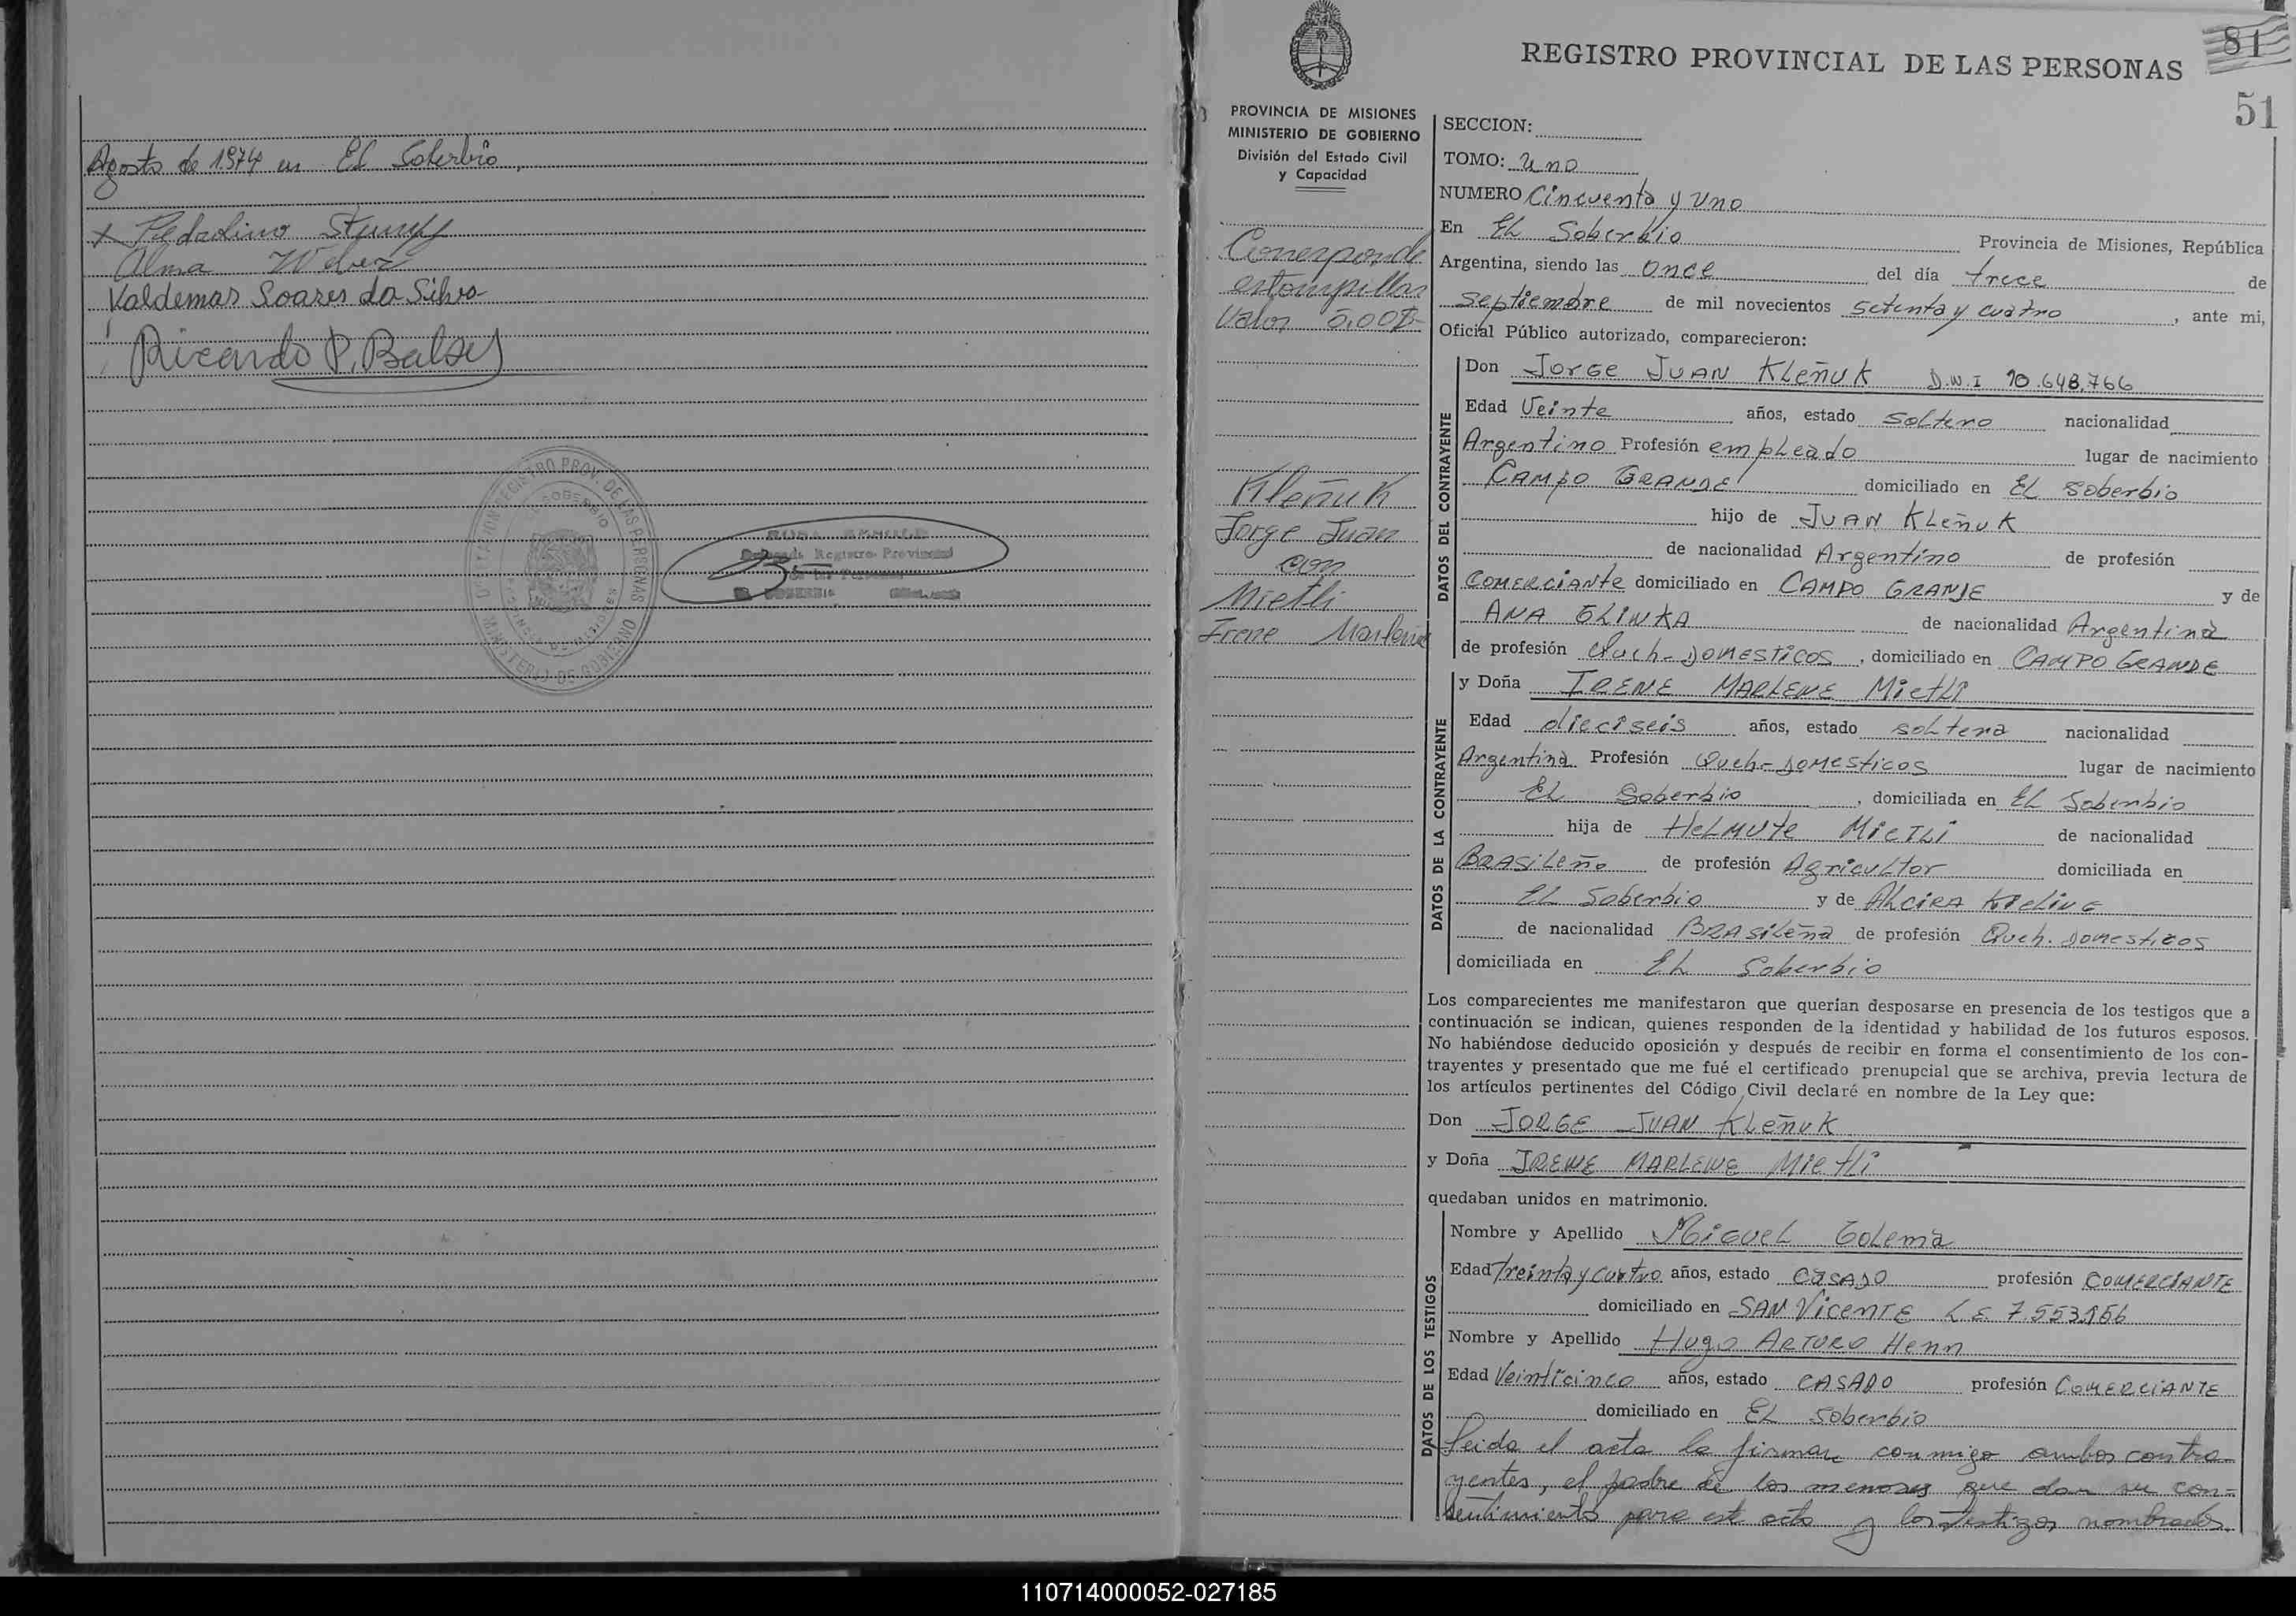 Agosto de 1974 en El Soberbio,
x Pedrolino Stumpf
Alma Weber
Valdemar Soares da Silva
Ricardo P. Balsey
DELEGACION REGISTRO PROV. DE LAS PERSONAS
EL SOBERBIO
MINISTERIO DE GOBIERNO
Registro Provincial
de las Personas
EL SOBERBIO
REGISTRO PROVINCIAL DE LAS PERSONAS
81
51
PROVINCIA DE MISIONES
MINISTERIO DE GOBIERNO
División del Estado Civil
y Capacidad
Corresponde
estampillas
Valor 5,00$
Kleñuk
Jorge Juan
con
Mietli
Irene Marlene
SECCION:
TOMO: uno
NUMERO Cincuenta y uno
En El Soberbio Provincia de Misiones, República
Argentina, siendo las once del día trece de
septiembre de mil novecientos setenta y cuatro, ante mi,
Oficial Público autorizado, comparecieron:
DATOS DEL CONTRAYENTE
Don Jorge JUAN KLeñuK D.N.I 10.648.766
Edad Veinte años, estado soltero nacionalidad
Argentino Profesión empleado lugar de nacimiento
CAMPO GRANDE domiciliado en EL soberbio
hijo de JUAN KLeñuK
de nacionalidad Argentino de profesión
COMERCIANte domiciliado en CAMPO GRANDE y de
ANA GLINKA de nacionalidad Argentina
de profesión Queh-DOMESTICOS, domiciliado en CAMPO GRANDE
DATOS DE LA CONTRAYENTE
y Doña IRENE MARLENE Mietli
Edad dieciseis años, estado soltera nacionalidad
Argentina Profesión Queh-DOMESticos lugar de nacimiento
EL Soberbio, domiciliada en EL Soberbio
hija de HeLMUte MIETLI de nacionalidad
BRASiLeño de profesión Agricultor domiciliada en
EL Soberbio y de ALCIRA KieLiNG
de nacionalidad BRASiLeña de profesión Queh. DOMESticos
domiciliada en EL Soberbio
Los comparecientes me manifestaron que querían desposarse en presencia de los testigos que a
continuación se indican, quienes responden de la identidad y habilidad de los futuros esposos.
No habiéndose deducido oposición y después de recibir en forma el consentimiento de los con-
trayentes y presentado que me fué el certificado prenupcial que se archiva, previa lectura de
los artículos pertinentes del Código Civil declaré en nombre de la Ley que:
Don JORGE JUAN KLeñuK
y Doña IRENE MARLENE Mietli
quedaban unidos en matrimonio.
DATOS DE LOS TESTIGOS
Nombre y Apellido MiGueL GoLema
Edad treinta y cuatro años, estado CASADO profesión COMERCIANTE
domiciliado en SAN VicenTE L E 7.553.156
Nombre y Apellido Hugo ARTURO Henn
Edad Veinticinco años, estado CASADO profesión COMERCIANTE
domiciliado en EL Soberbio
Leida el acta la firman conmigo ambos contra-
yentes, el padre de los menores que dan su con-
sentimiento para este acto y los testigos nombrados.
110714000052-027185